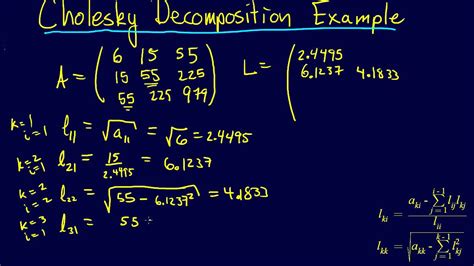 Cholesky Decomposition Example
A = ( 6 15 55
15 55 225
55 225 979 )
L = ( 2.4495
6.1237 4.1833
k=1 i=1 l₁₁ = √a₁₁ = √6 = 2.4495
k=2 i=1 l₂₁ = 15/2.4495 = 6.1237
k=2 i=2 l₂₂ = √(55 - 6.1237²) = 4.1833
k=3 i=1 l₃₁ = 55
l_ki = (a_ki - Σ_{j=1}^{i-1} l_ij l_kj) / l_ii
l_kk = √(a_kk - Σ_{j=1}^{k-1} l²_kj)